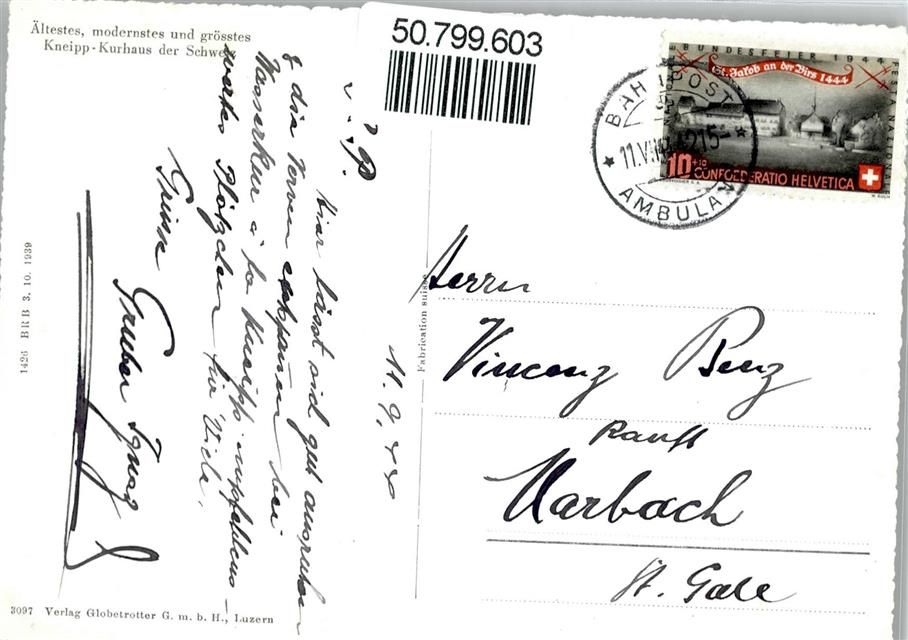 Ältestes, modernstes und grösstes
Kneipp-Kurhaus der Schweiz
50.799.603
BUNDESFEIER 1944
St. Jakob an der Birs 1444
10+10
CONFOEDERATIO HELVETICA
BAHNPOST
AMBULANT
11.9.44
Hier lässt sich gut ausruhen
& die Nerven entspannen bei
Wasserkur à la Kneipp. empfehlens-
wertes Plätzchen für Viele.
Grüsse
Gruber Ignaz
Herrn
Vincenz Benz
Ranft
Marbach
St. Galle
Fabrication suisse
1426 BRB 3. 10. 1939
3097 Verlag Globetrotter G. m. b. H., Luzern